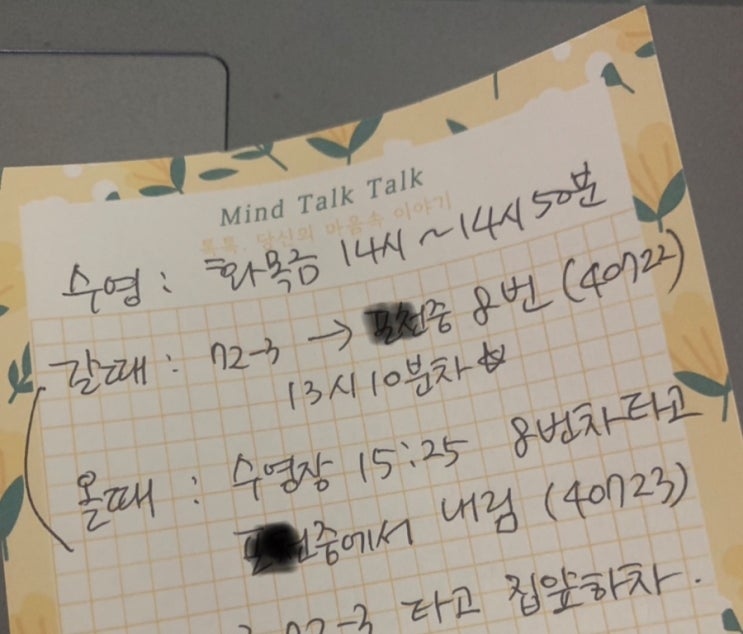 Mind Talk Talk
톡톡, 당신의 마음속 이야기
수영 : 화목금 14시 ~ 14시 50분
갈때 : 72-3 → 중 8번 (40722)
13시 10분차 ☆
올때 : 수영장 15:25 8번차 타고
중에서 내림 (40723)
72-3 타고 집앞하차.